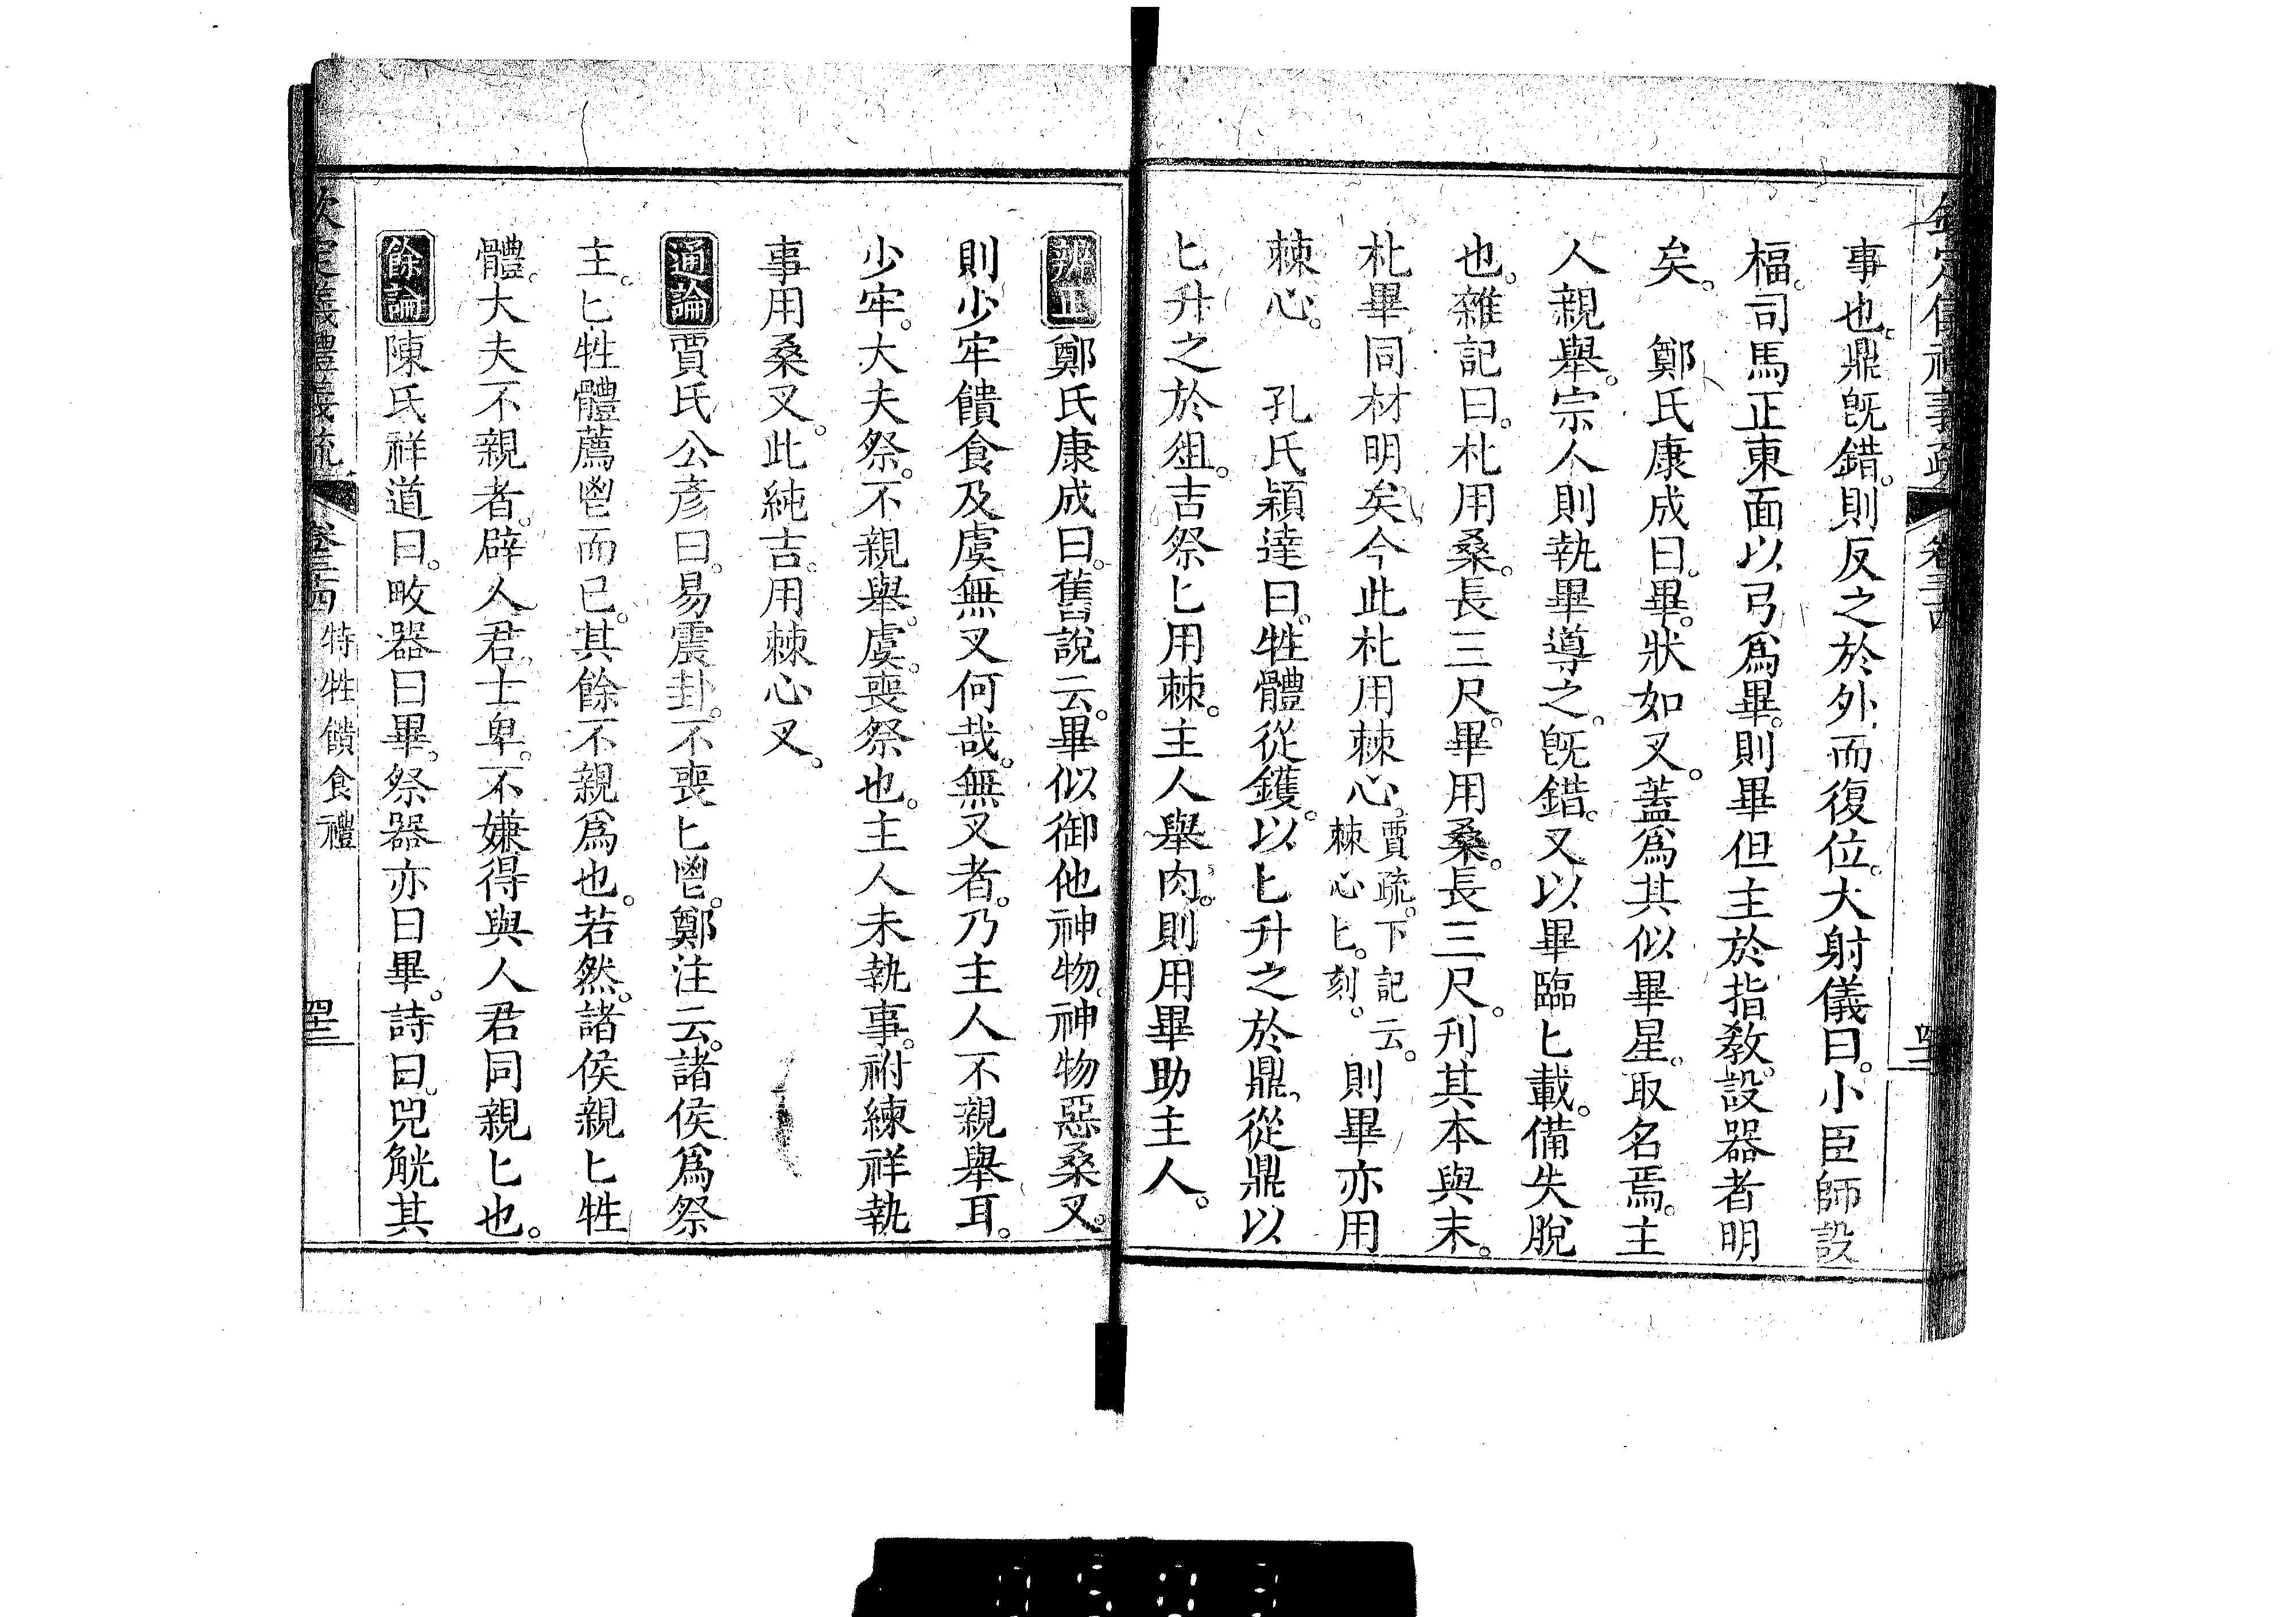 事也。鼎旣錯。則反之於外而復位。大射儀曰。小臣師設
楅。司馬正東面以弓爲畢。則畢但主於指教。設器者明
矣。 鄭氏康成曰。畢。狀如叉。蓋爲其似畢星。取名焉。主
人親舉。宗人則執畢導之。旣錯。又以畢臨匕載。備失脫
也。雜記曰。朼用桑。長三尺。畢用桑。長三尺。刊其本與末。
朼畢同材明矣。今此朼用棘心。賈疏。下記云。棘心匕。刻。則畢亦用
棘心。 孔氏穎達曰。牲體從鑊。以匕升之於鼎。從鼎以
匕升之於俎。吉祭匕用棘。主人舉肉。則用畢助主人。
辨正鄭氏康成曰。舊說云。畢似御他神物。神物惡桑叉。
則少牢饋食及虞無叉何哉。無叉者。乃主人不親舉耳。
少牢。大夫祭。不親舉。虞。喪祭也。主人未執事。祔練祥執
事用桑叉。此純吉。用棘心叉。
通論賈氏公彥曰。易震卦。不喪匕鬯。鄭注云。諸侯爲祭
主。匕牲體薦鬯而已。其餘不親爲也。若然。諸侯親匕牲
體。大夫不親者。辟人君。士卑。不嫌得與人君同親匕也。
餘論陳氏祥道曰。畋器曰畢。祭器亦曰畢。詩曰。兕觥其
欽定儀禮義疏 卷三十四 特牲饋食禮